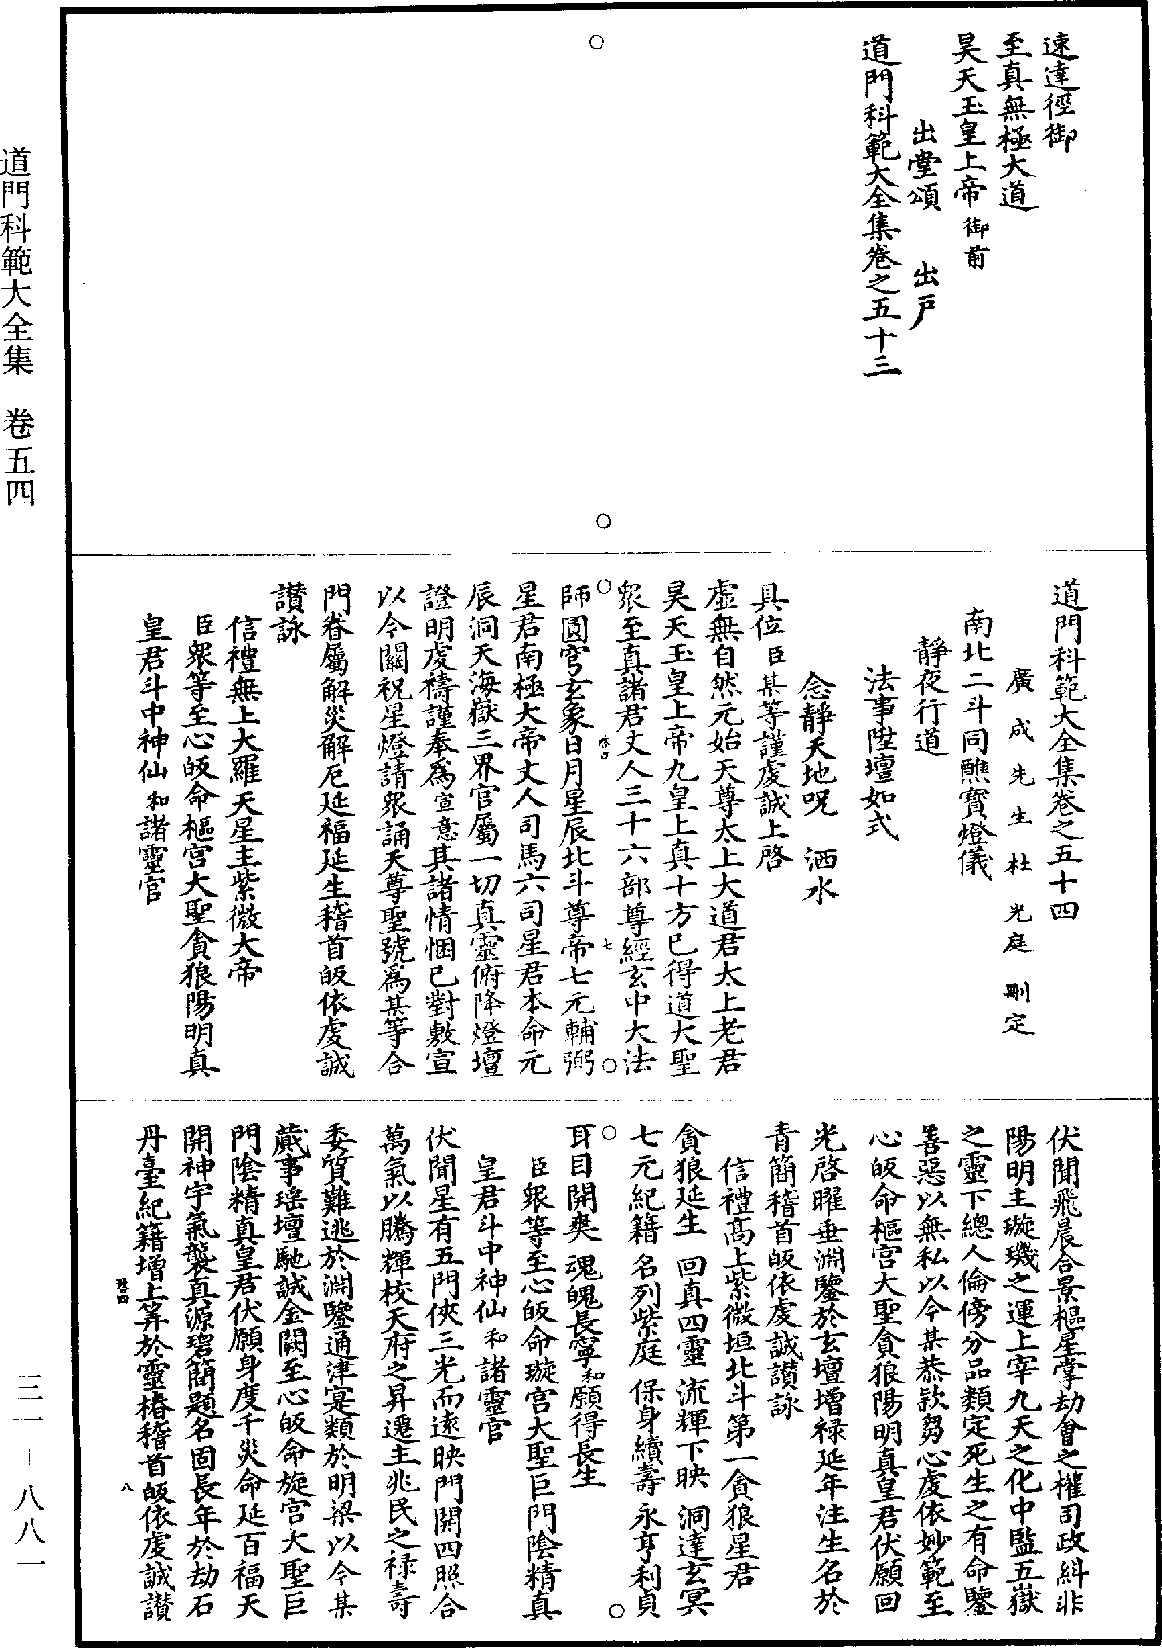 速達徑御
至真無極大道
昊天玉皇上帝御前
出堂頌　出戶
道門科範大全集卷之五十三
道門科範大全集卷之五十四
廣成先生杜光庭刪定
南北二斗同醮寶燈儀
靜夜行道
法事陞壇如式
念靜天地呪　洒水
具位臣某等謹虔誠上啓
虛無自然元始天尊太上大道君太上老君
昊天玉皇上帝九皇上真十方已得道大聖
眾至真諸君丈人三十六部尊經玄中大法
師圓穹玄象日月星辰北斗尊帝七元輔弼
星君南極大帝丈人司馬六司星君本命元
辰洞天海嶽三界官屬一切真靈俯降燈壇
證明虔禱謹奉為宣意其諸情悃已對敷宣
以今關祝星燈請眾誦天尊聖號為某等合
門眷屬解災解厄延福延生稽首皈依虔誠
讚詠
信禮無上大羅天星主紫微大帝
臣眾等至心皈命樞宮大聖貪狼陽明真
皇君斗中神仙和諸靈官
伏聞飛晨合景樞星掌劫會之權司政糾非
陽明主璇璣之運上宰九天之化中監五嶽
之靈下總人倫傍分品類定死生之有命鑒
善惡以無私以今某恭欵芻心虔依妙範至
心皈命樞宮大聖貪狼陽明真皇君伏願回
光啓曜垂淵鑒於玄壇增祿延年注生名於
青簡稽首皈依虔誠讚詠
信禮高上紫微垣北斗第一貪狼星君
貪狼延生　回真四靈　流輝下映　洞達玄冥
七元紀籍　名列紫庭　保身續壽　永亨利貞
耳目開爽　魂魄長寧和願得長生
臣眾等至心皈命璇宮大聖巨門陰精真
皇君斗中神仙和諸靈官
伏聞星有五門俠三光而遠映門開四照合
萬氣以騰輝校天府之昇遷主兆民之祿壽
委質難逃於淵鑒通津寔類於明梁以今某
蕆事瑤壇馳誠金闕至心皈命旋宮大聖巨
門陰精真皇君伏願身度千災命延百福天
開神宇氣襲真源碧簡題名固長年於劫石
丹臺紀籍增上筭於靈椿稽首皈依虔誠讚
道門科範大全集　卷五四
三一－八八一